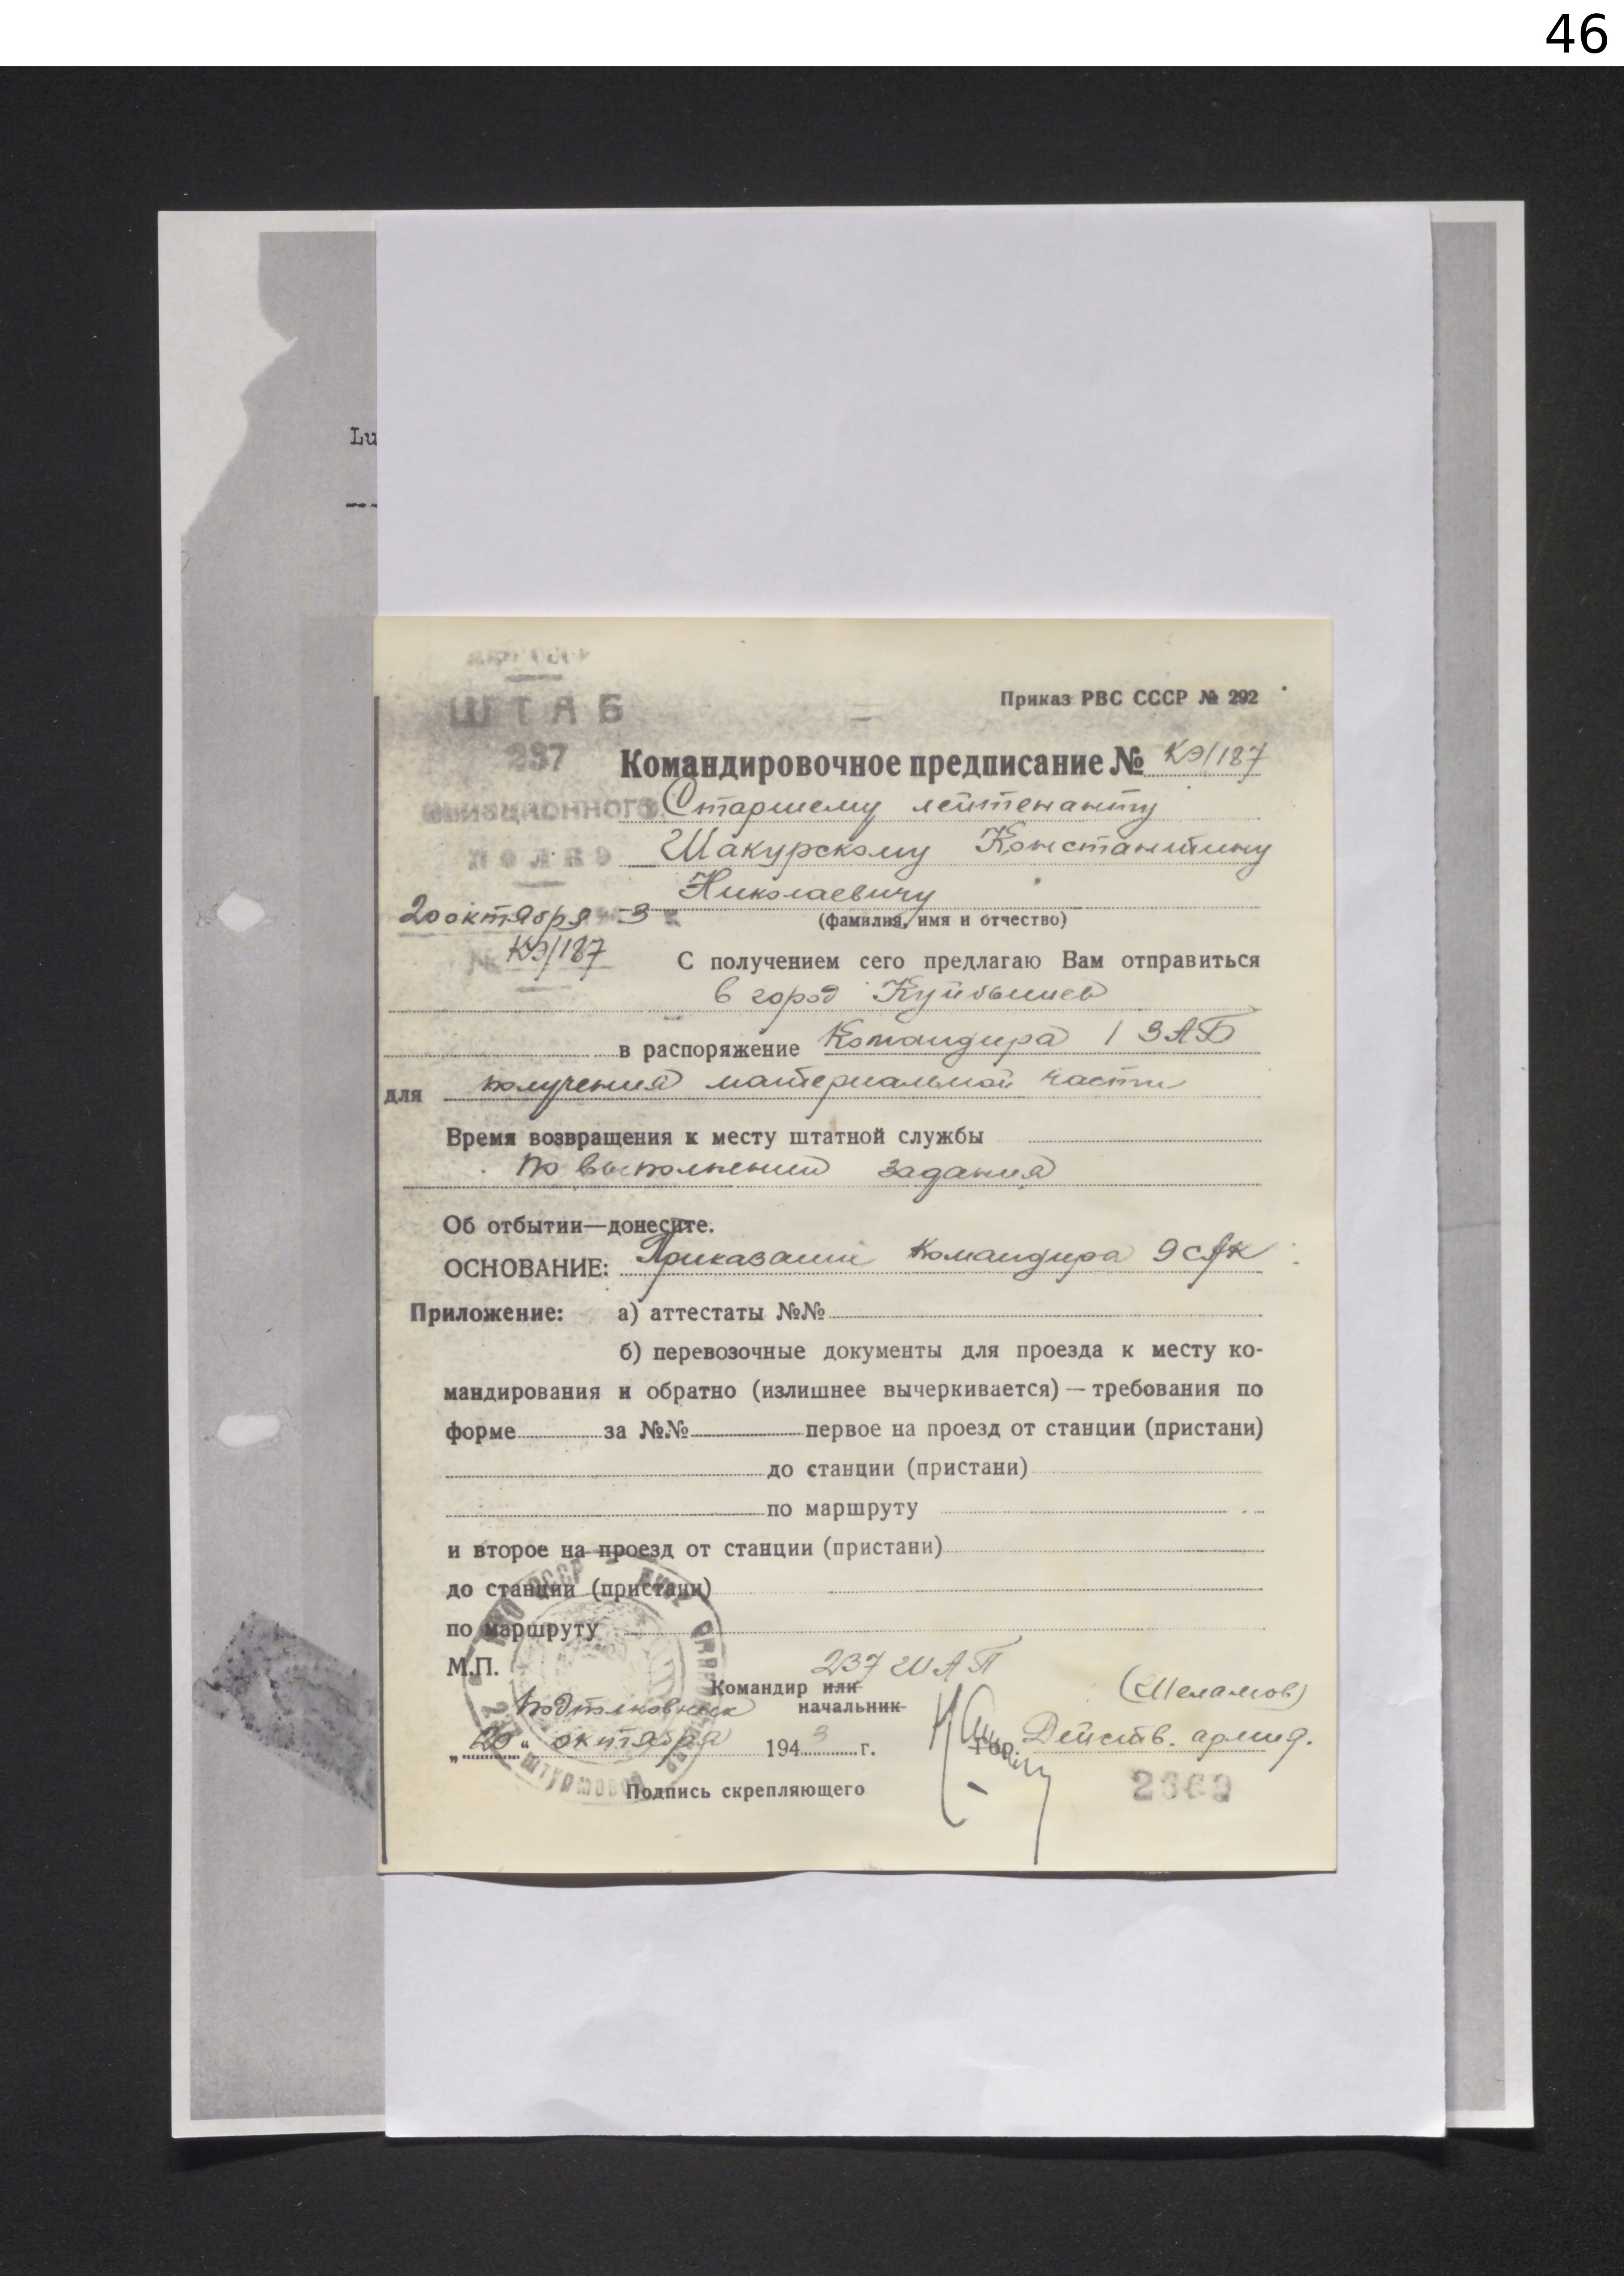 46
Lu
ШТАБ
Приказ РВС СССР № 292
237
Командировочное предписание № КЭ/187
авиационного
Старшему лейтенанту
полка
Шакурскому Константину
Николаевичу
20 октября 3
(фамилия, имя и отчество)
КЭ/187
С получением сего предлагаю Вам отправиться
в город Куйбышев
в распоряжение Командира 1 ЗАБ
для получения материальной части
Время возвращения к месту штатной службы
по выполнении задания
Об отбытии—донесите.
ОСНОВАНИЕ: Приказание Командира 9 САК
Приложение: а) аттестаты №№
б) перевозочные документы для проезда к месту ко-
мандирования и обратно (излишнее вычеркивается) — требования по
форме за №№ первое на проезд от станции (пристани)
до станции (пристани)
по маршруту
и второе на проезд от станции (пристани)
до станции (пристани)
по маршруту
М.П.
237 ШАП
Командир или
начальник
подполковник
„20“ октября 1943 г.
Гор. Действ. армия.
Подпись скрепляющего